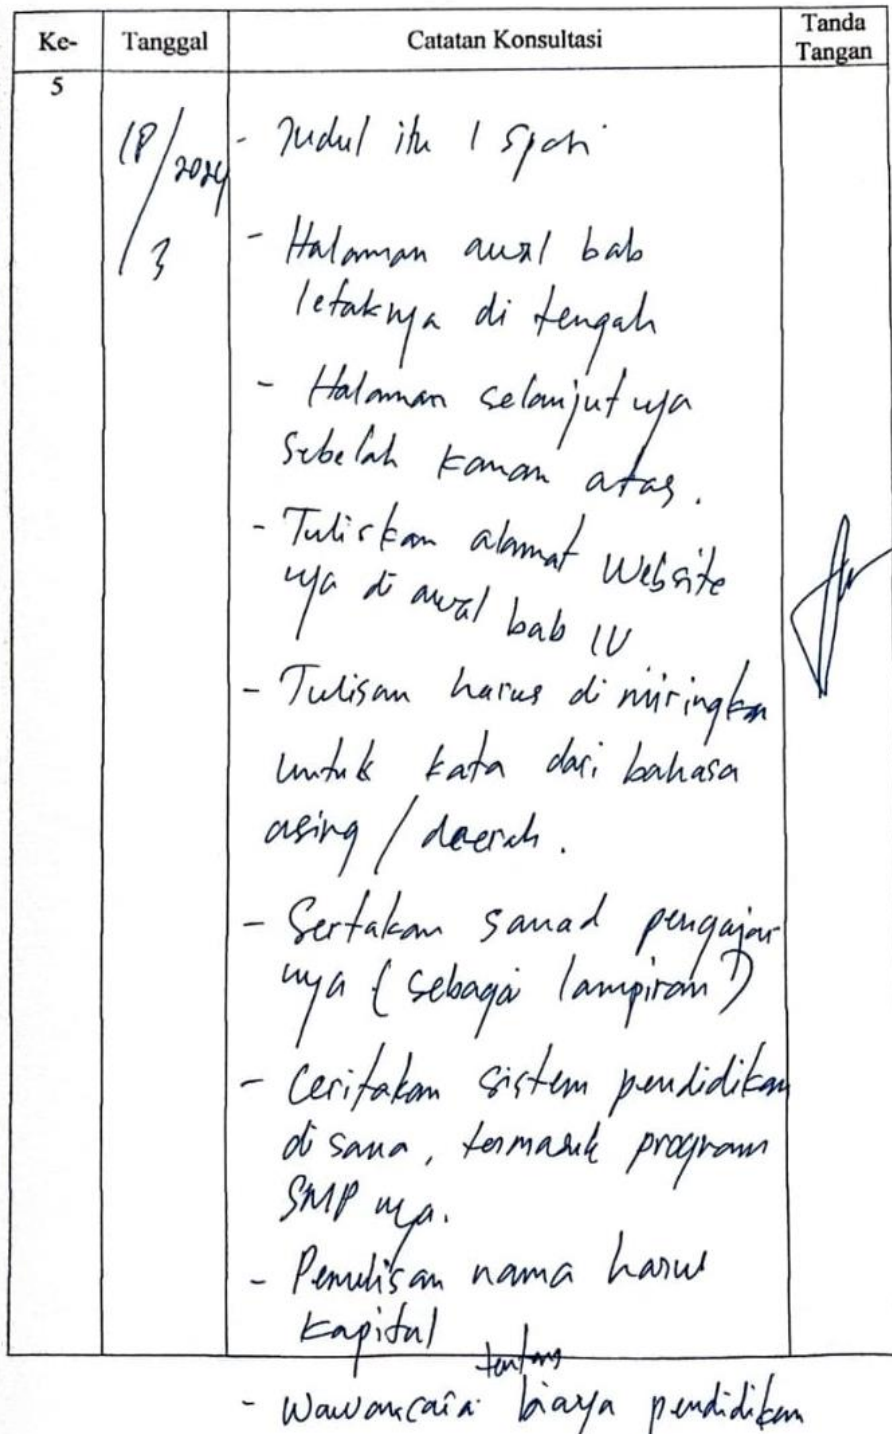 Ke- Tanggal Catatan Konsultasi Tanda Tangan
5
18/3 2024
- Judul itu 1 spasi
- Halaman awal bab
letaknya di tengah
- Halaman selanjutnya
sebelah kanan atas.
- Tuliskan alamat website
nya di awal bab IV
- Tulisan harus di miringkan
untuk kata dari bahasa
asing / daerah.
- Sertakan sanad pengajar
nya (sebagai lampiran)
- Ceritakan sistem pendidikan
di sana, termasuk program
SMP nya.
- Penulisan nama harus
kapital
- Wawancara tentang biaya pendidikan